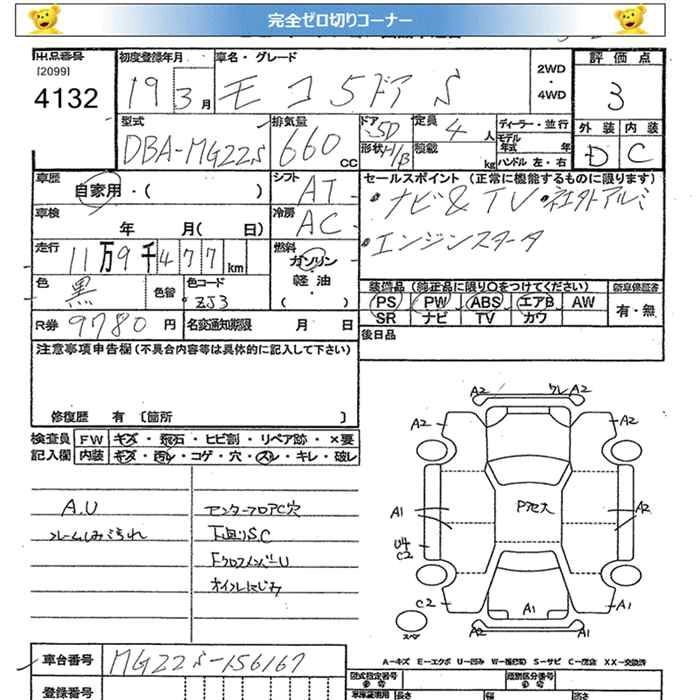 完全ゼロ切りコーナー
出品番号 初度登録年月 車名・グレード 評価点
[2099]
4132 19 3月 モコ 5ドア S 2WD・4WD 3
型式 排気量 ドア 5D 定員 4人 ディーラー・並行 外装 内装
DBA-MG22S 660 CC 形状 H/B 積載 kg モデル年式 年 ハンドル 左・右 D C
車歴 自家用・( ) シフト AT セールスポイント (正常に機能するものに限ります)
・ナビ&TV ・社外アルミ
車検 年 月(日) 冷房 AC
・エンジンスターター
走行 11万9千477km 燃料 ガソリン・軽油・( )
色 黒 色替 色コード ZJ3
装備品 (純正品に限り○をつけてください) 新車保証書
PS PW ABS エアB AW 有・無
SR ナビ TV カワ
R券 9780円 名変通知期限 月 日
後日品
注意事項申告欄 (不具合内容等は具体的に記入して下さい)
修復歴 有 [箇所 ]
検査員 FW キズ・飛石・ヒビ割・リペア跡・×要
記入欄 内装 キズ・汚レ・コゲ・穴・スレ・キレ・破レ
A.U アンダーフロアC穴
フレームしみ汚れ 下廻りSC
FクロスメンバーU
オイルにじみ
A2 ワレA2
A2 A2
A1 Pアセス A2
U4
C2
C2 A1 A1
スペア A2 A1
A-キズ E-エクボ U-凹み W-補修 S-サビ C-腐食 XX-交換済
車台番号 MG22S-156167
型式指定番号 類別区分番号
登録番号 長さ 幅 高さ